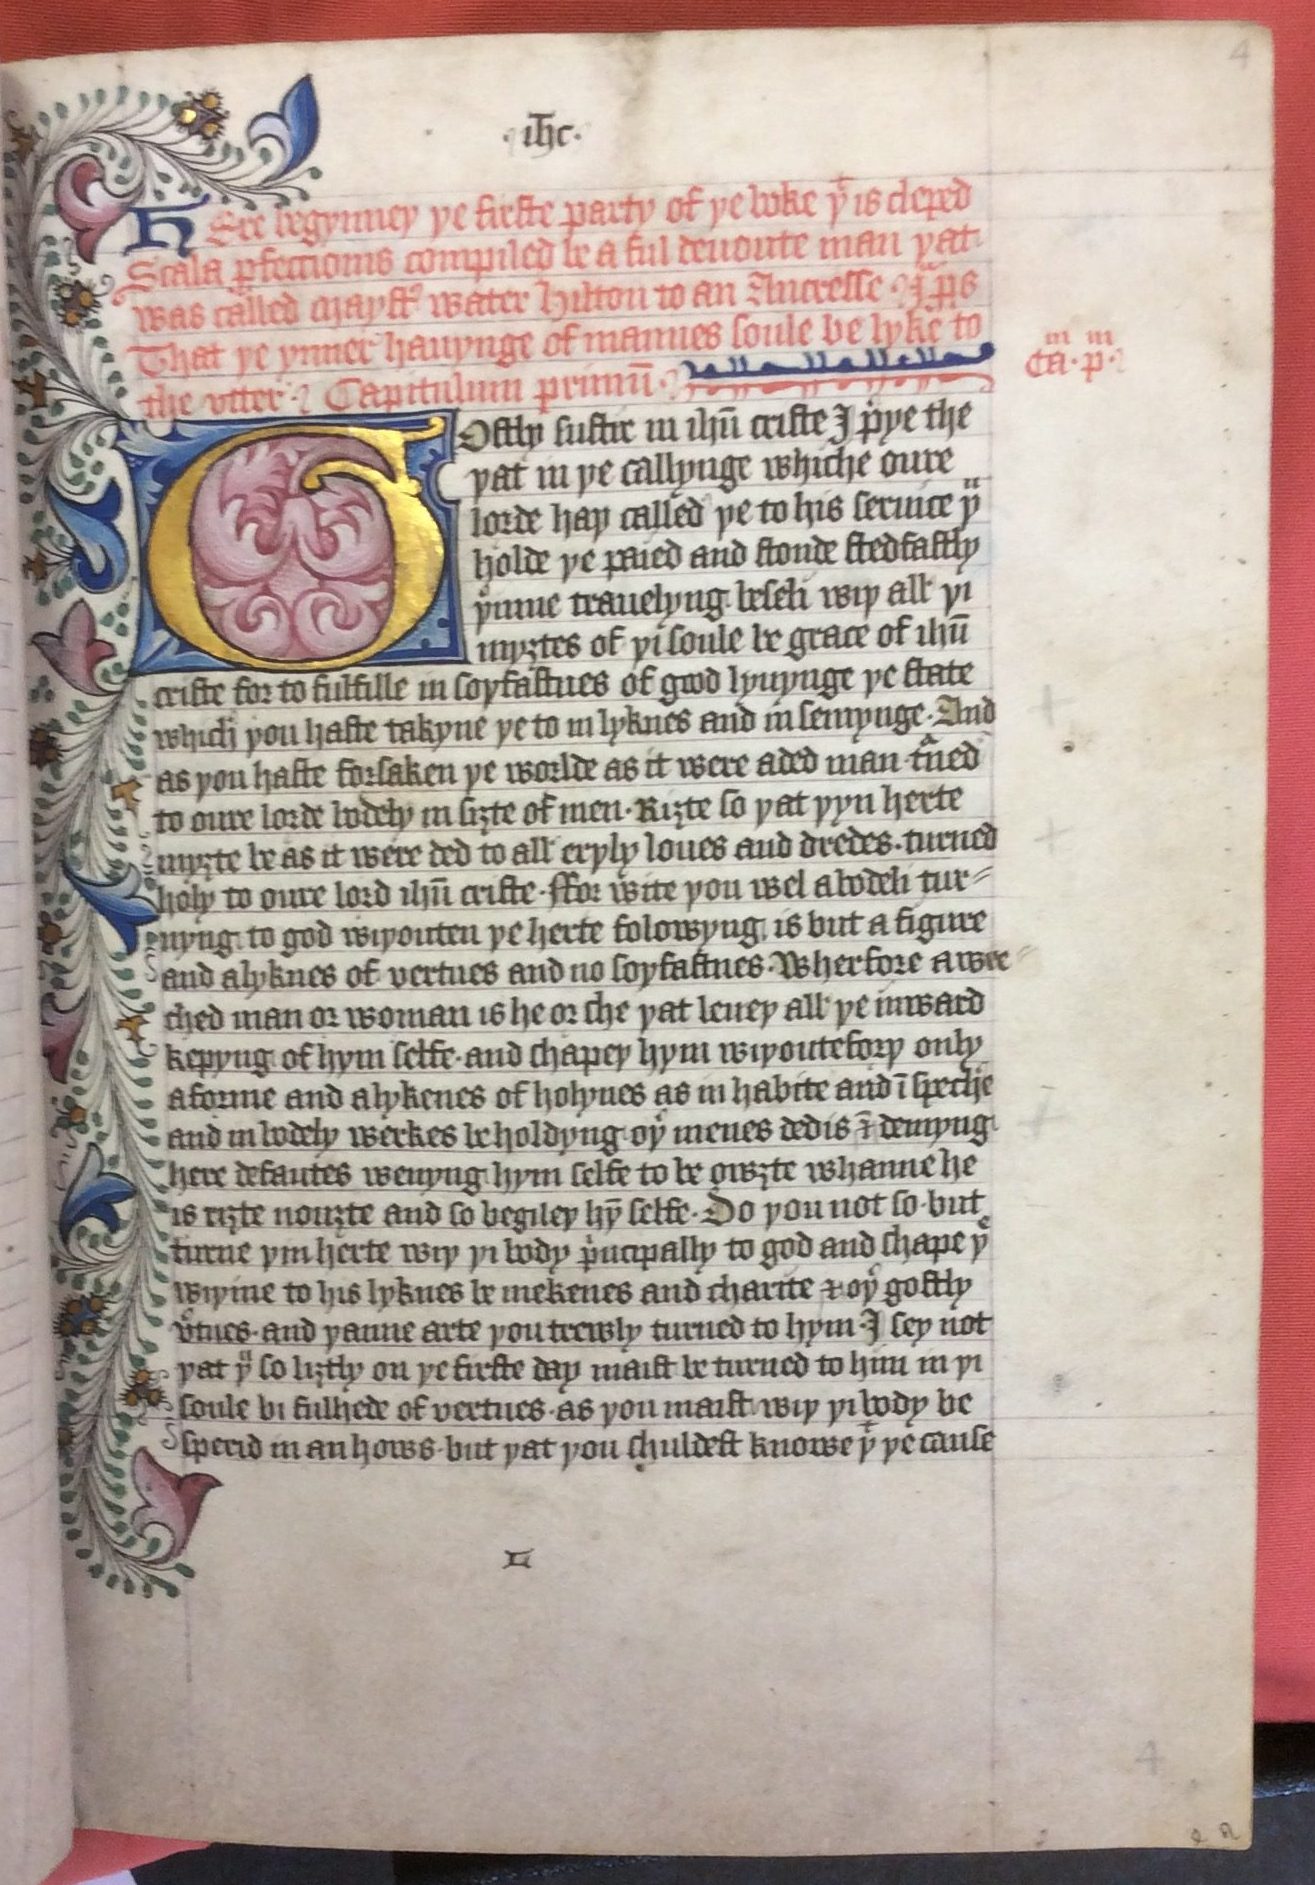 4
·ihc·
HEre begynney ye firste party of ye boke yͭ is cleped
Scala ꝑfectionis compiled be a ful deuoute man yat
was called mayst͛ water hilton to an Ancresse · Jͫpͥs
That ye ynner hauynge of mannes soule be lyke to
the vtter · Capitulum primū ·
Caᵐ · pᵐ ·
GOstly suster in ihū criste J pͥye the
yat in ye callynge whiche oure
lorde hay called ye to his seruice yͧ
holde ye paied and stonde stedfastly
yͥnne trauelyng beseli wiy all yi
myȝtes of yi soule be grace of ihū
criste for to fulfille in soyfastnes of good lyuynge ye state
which you haste takyne ye to in lyknes and in semynge · And
as you haste forsaken ye worlde as it were aded man t̄ned
to oure lorde bodely in siȝte of men · Riȝte so yat yyn herte
myȝte be as it were ded to all eryly loues and dredes · turned
holy to oure lord ihū criste · ffor wite you wel a bodeli tur⸗
nyng to god wiyouten ye herte folowyng is but a figure
and alyknes of vertues and no soyfastnes · Wherfore a wrec
ched man or woman is he or she yat leuey all ye inward
kepyng of hym selfe · and shapey hym wiyoutefory only
aforme and alykenes of holynes as in habite and ī speche
and in bodely werkes beholdyng oyͬ menes dedis & demyng
here defautes wenyng hym selfe to be owȝte whanne he
is riȝte nouȝte and so begiley hȳ selfe · Do you not so · but
turne yin herte wiy yi body pͥncipally to god and shape yͤ
wiyine to his lyknes be mekenes and charite & oyͬ gostly
v͛tues · and yanne arte you trewly turned to hym · J sey not
yat yͧ so liȝtly on ye firste day maist be turned to him in yi
soule bi fulhede of vertues · as you maist wiy yi body be
sperid in an hows · but yat you shuldest knowe yͭ ye cause
4